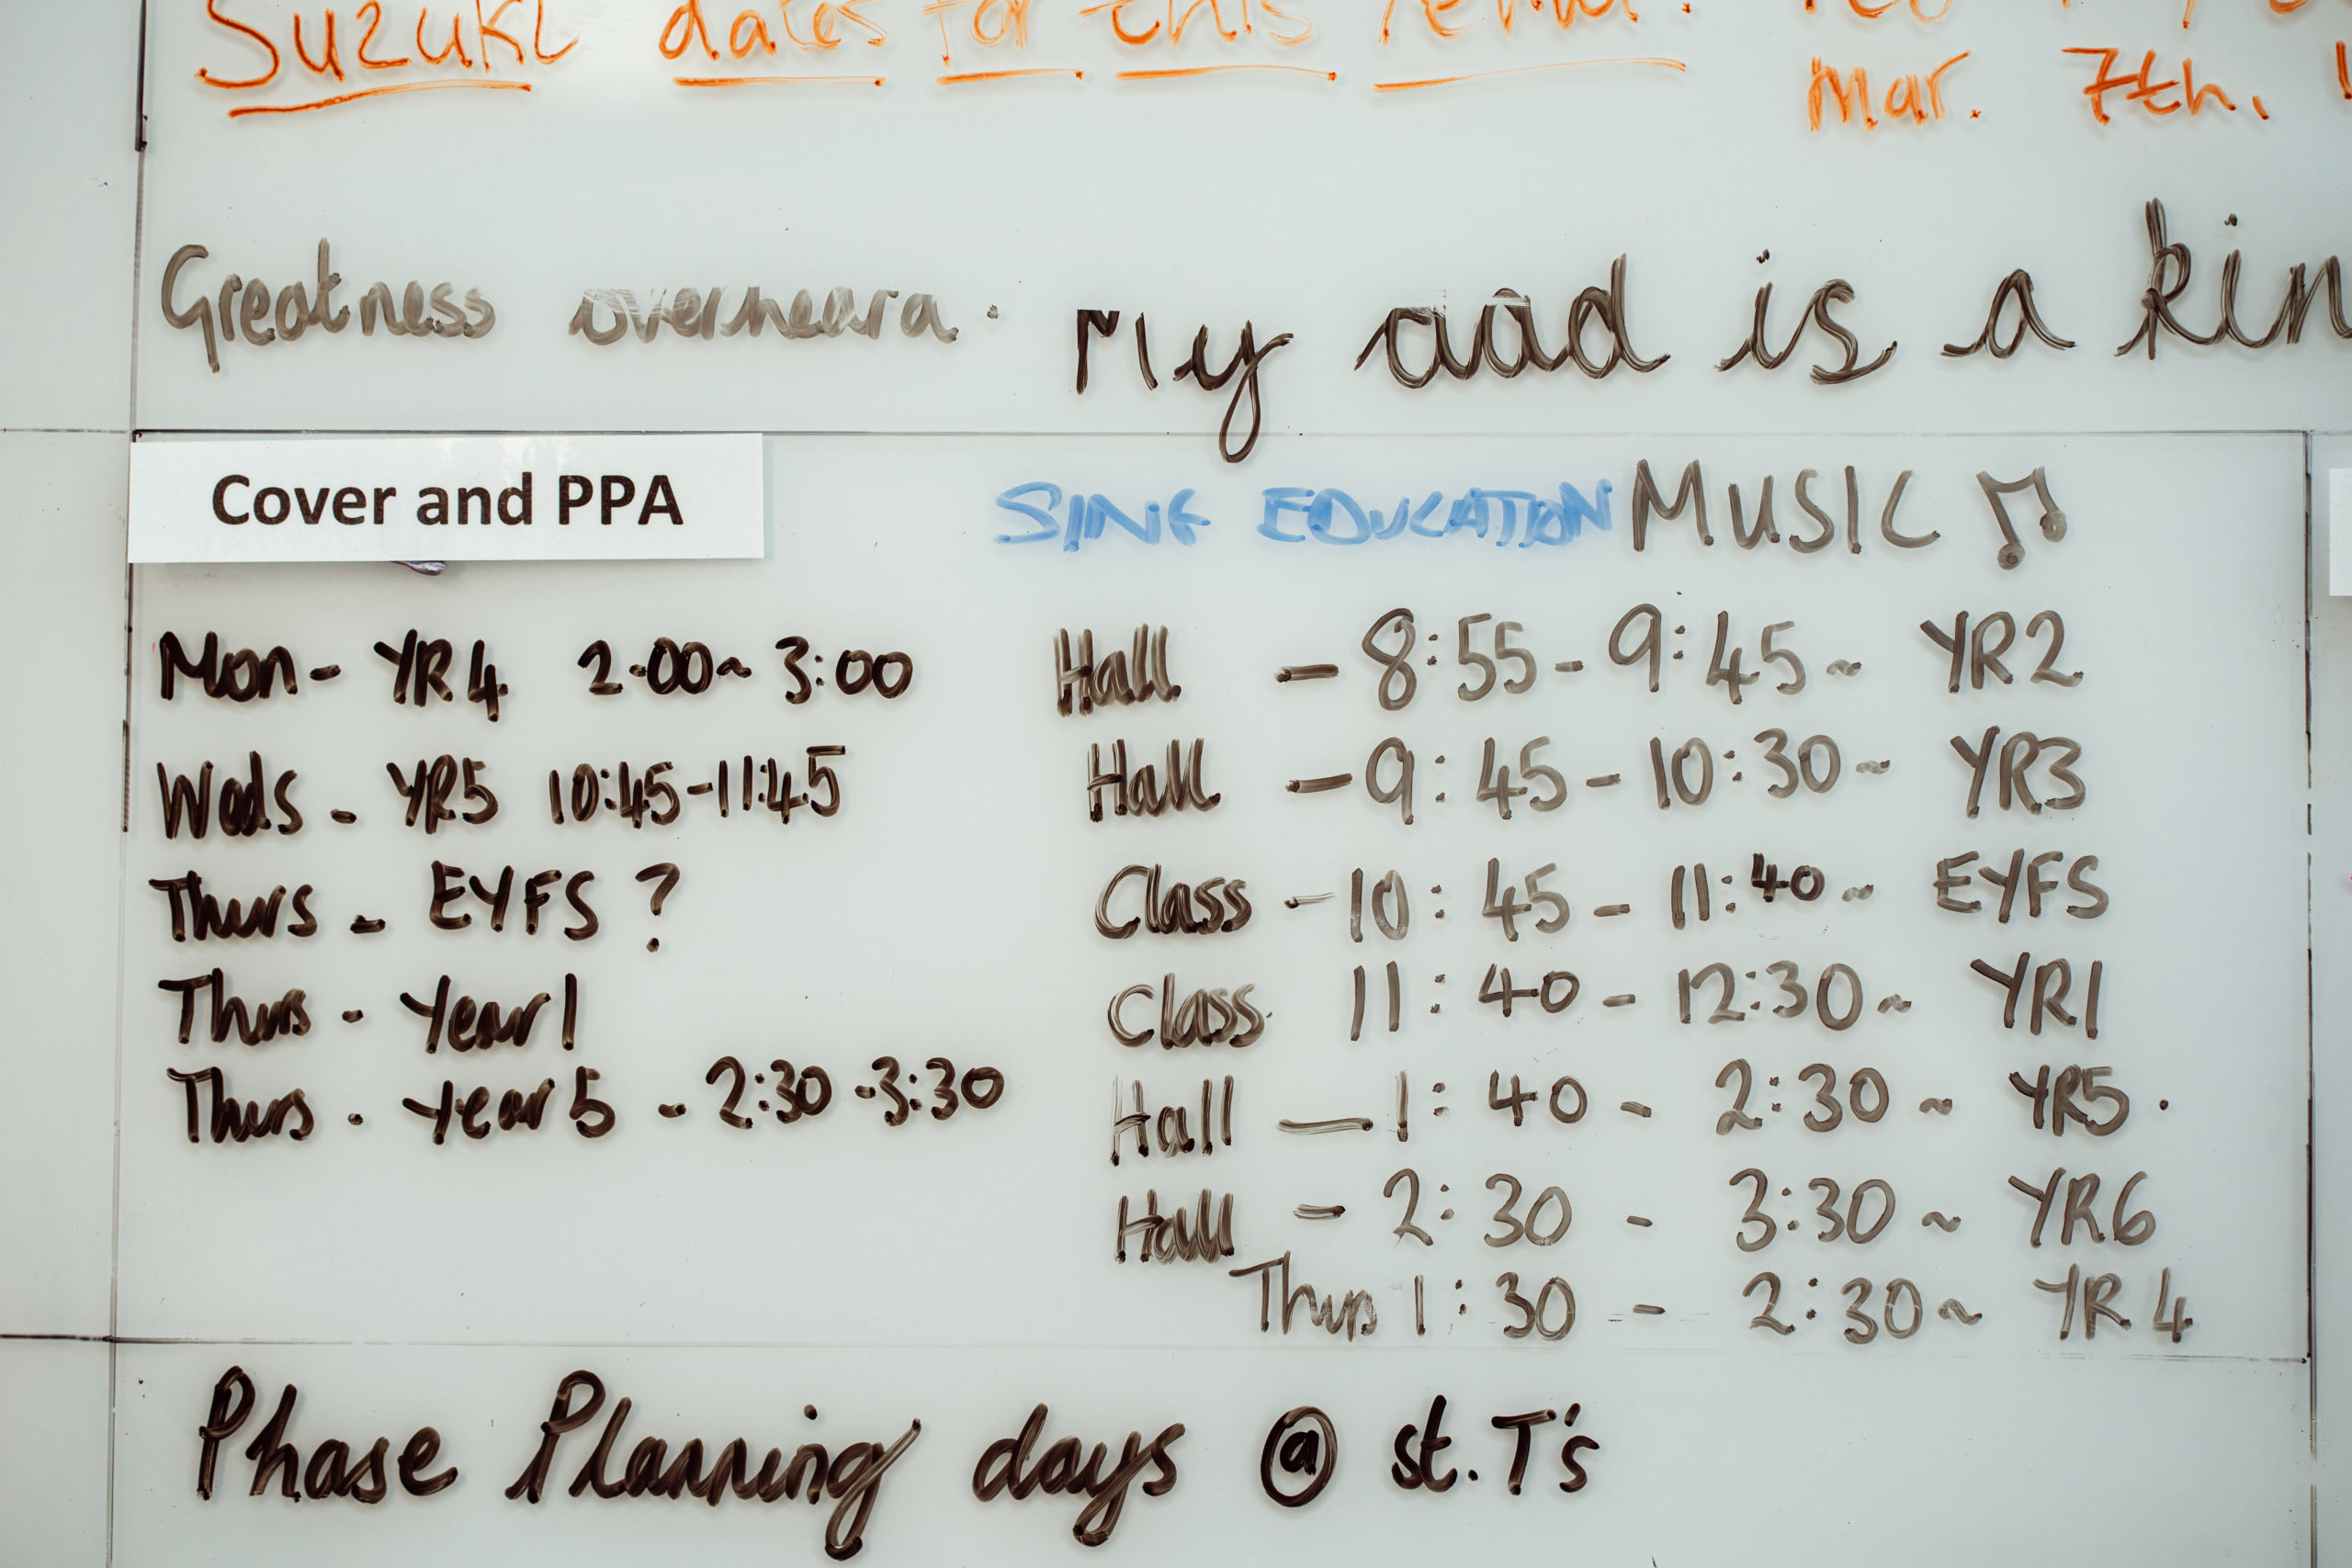 Suzuki dates for this term:
Mar. 7th. !
Greatness overheard. My dad is a
Cover and PPA
SING EDUCATION MUSIC
Mon - YR4 2.00~ 3:00
Weds - YR5 10:45-11:45
Thurs - EYFS ?
Thurs - Year 1
Thurs - Year 5 - 2:30 -3:30
Hall - 8:55 - 9:45 ~ YR2
Hall - 9:45 - 10:30 ~ YR3
Class - 10:45 - 11:40 ~ EYFS
Class. 11:40 - 12:30 ~ YR1
Hall - 1:40 - 2:30 ~ YR5.
Hall - 2:30 - 3:30 ~ YR6
Thurs 1:30 - 2:30 ~ YR4
Phase Planning days @ st. T's